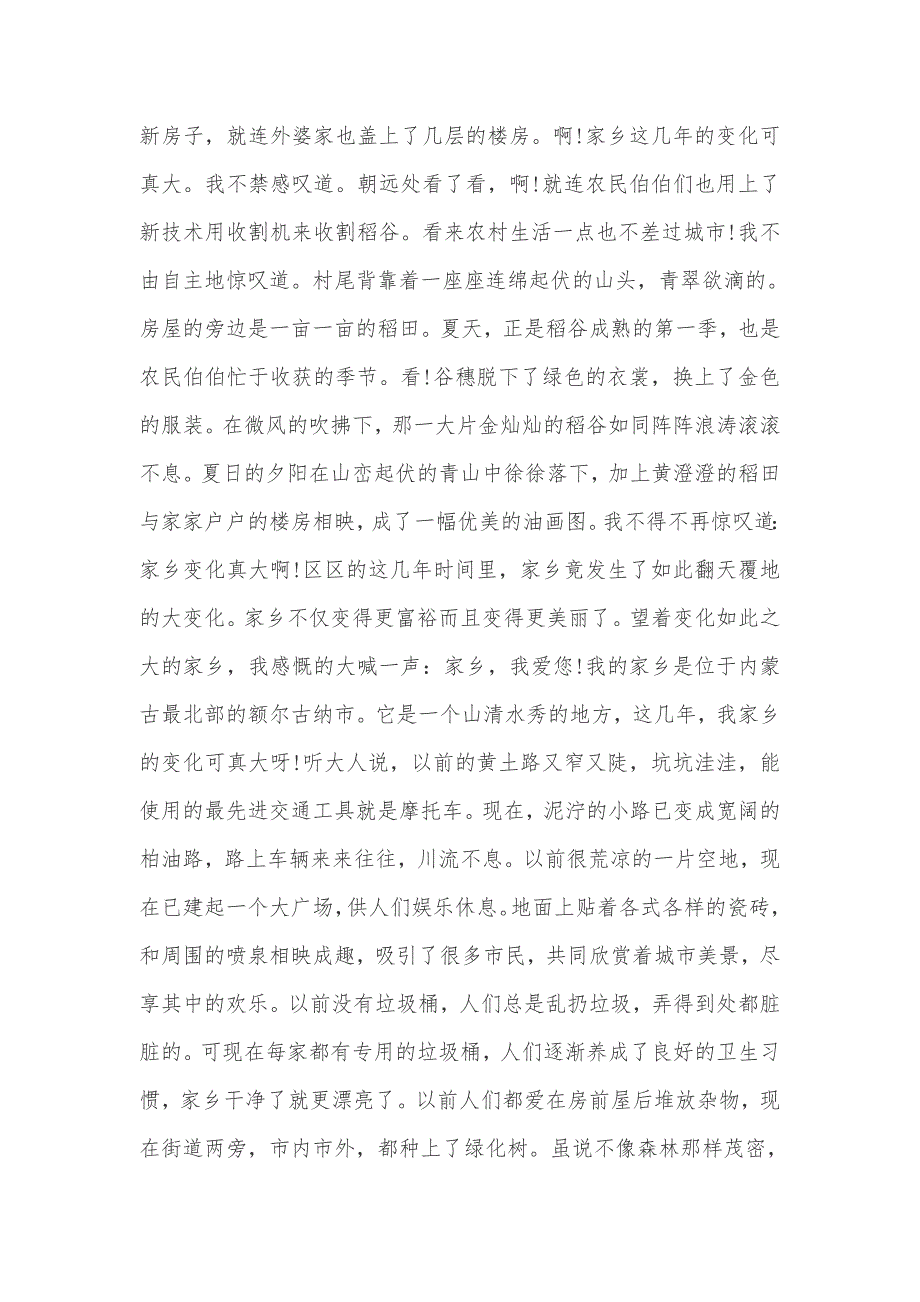 新房子，就连外婆家也盖上了几层的楼房。啊!家乡这几年的变化可
真大。我不禁感叹道。朝远处看了看，啊!就连农民伯伯们也用上了
新技术用收割机来收割稻谷。看来农村生活一点也不差过城市!我不
由自主地惊叹道。村尾背靠着一座座连绵起伏的山头，青翠欲滴的。
房屋的旁边是一亩一亩的稻田。夏天，正是稻谷成熟的第一季，也是
农民伯伯忙于收获的季节。看!谷穗脱下了绿色的衣裳，换上了金色
的服装。在微风的吹拂下，那一大片金灿灿的稻谷如同阵阵浪涛滚滚
不息。夏日的夕阳在山峦起伏的青山中徐徐落下，加上黄澄澄的稻田
与家家户户的楼房相映，成了一幅优美的油画图。我不得不再惊叹道:
家乡变化真大啊!区区的这几年时间里，家乡竟发生了如此翻天覆地
的大变化。家乡不仅变得更富裕而且变得更美丽了。望着变化如此之
大的家乡，我感慨的大喊一声：家乡，我爱您!我的家乡是位于内蒙
古最北部的额尔古纳市。它是一个山清水秀的地方，这几年，我家乡
的变化可真大呀!听大人说，以前的黄土路又窄又陡，坑坑洼洼，能
使用的最先进交通工具就是摩托车。现在，泥泞的小路已变成宽阔的
柏油路，路上车辆来来往往，川流不息。以前很荒凉的一片空地，现
在已建起一个大广场，供人们娱乐休息。地面上贴着各式各样的瓷砖，
和周围的喷泉相映成趣，吸引了很多市民，共同欣赏着城市美景，尽
享其中的欢乐。以前没有垃圾桶，人们总是乱扔垃圾，弄得到处都脏
脏的。可现在每家都有专用的垃圾桶，人们逐渐养成了良好的卫生习
惯，家乡干净了就更漂亮了。以前人们都爱在房前屋后堆放杂物，现
在街道两旁，市内市外，都种上了绿化树。虽说不像森林那样茂密，